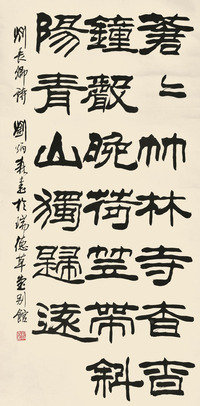 蒼〻竹林寺杳杳
鐘聲晚荷笠帶斜
陽青山獨歸遠
劉長卿詩 劉炳森書於瑞德草堂別館